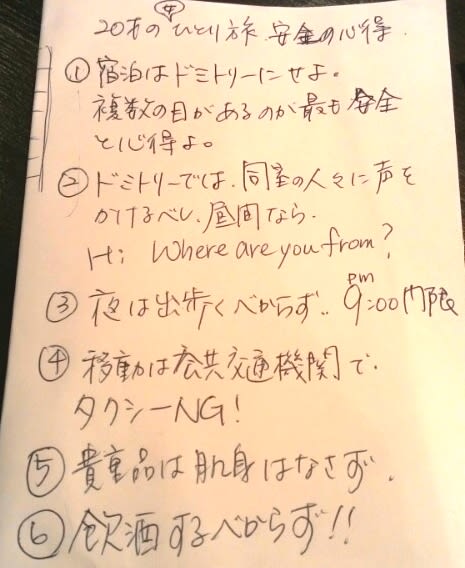 20才の女ひとり旅 安全の心得
① 宿泊はドミトリーにせよ。
複数の目があるのが最も安全
と心得よ。
② ドミトリーでは、同室の人々に声を
かけるべし、昼間なら、
Hi Where are you from?
③ 夜は出歩くべからず.. pm 9:00門限
④ 移動は公共交通機関で、
タクシーNG!
⑤ 貴重品は肌身はなさず、
⑥ 飲酒するべからず!!